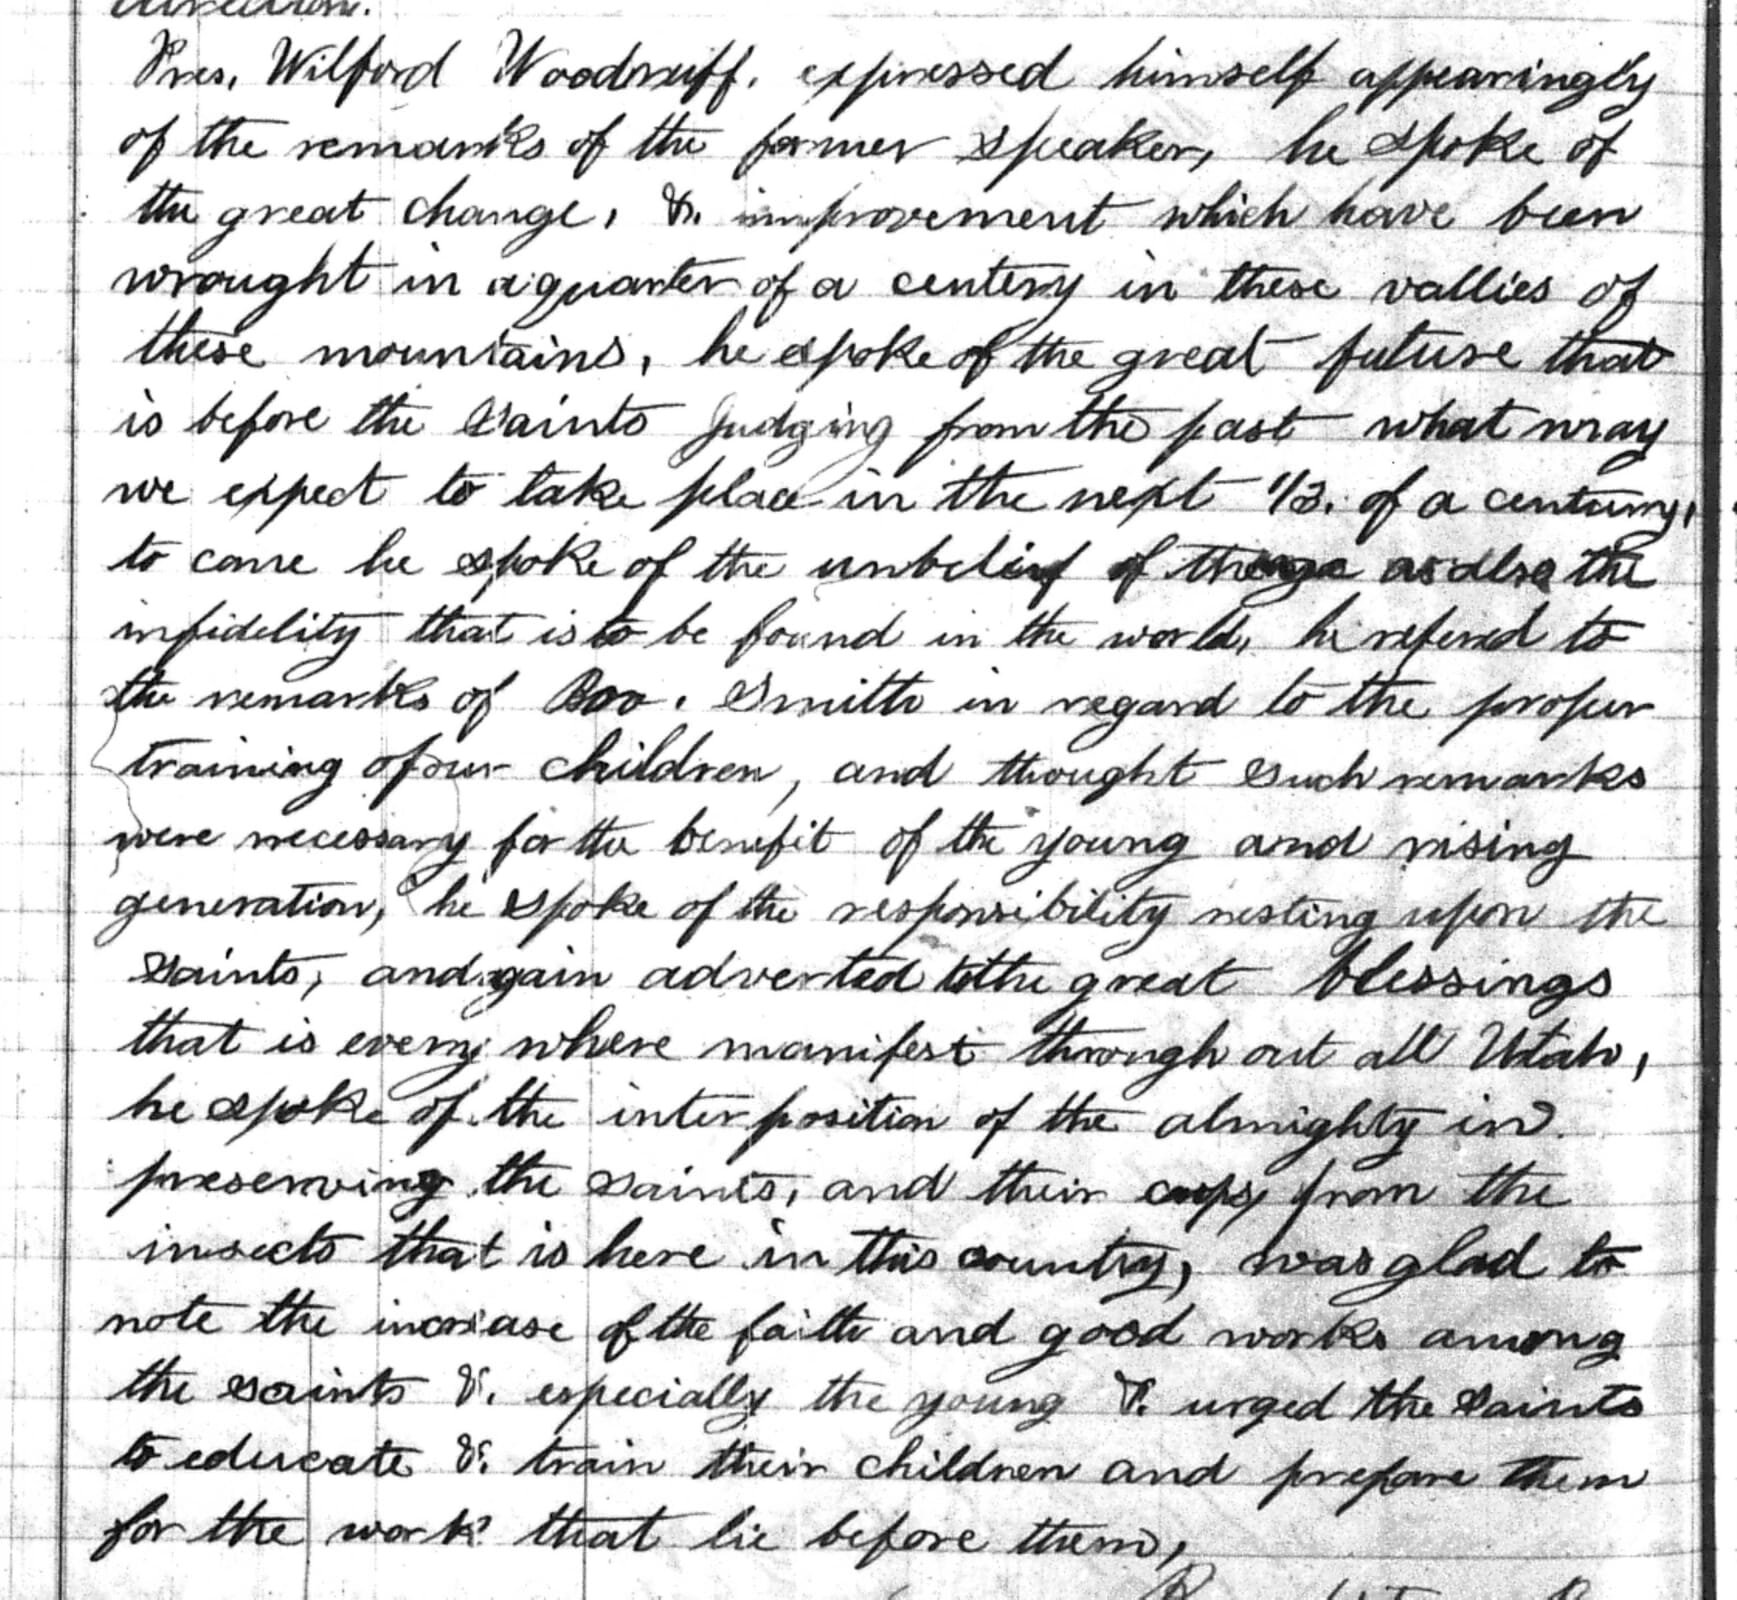 direction.
Pres. Wilford Woodruff. expressed himself appearingly
of the remarks of the former speaker, he spoke of
the great change, &. improvement which have been
wrought in a quarter of a centery in these vallies of
these mountains, he spoke of the great future that
is before the Saints Judging from the past what may
we expect to take place in the next 1/3. of a century,
to come he spoke of the unbelief of the age as also the
infidelity that is to be found in the world, he refered to
the remarks of Bro. Smith in regard to the proper
training of our children, and thought such remarks
were necessary for the benefit of the young and rising
generation, he spoke of the responsibility resting upon the
Saints, and again adverted to the great blessings
that is every where manifest through out all Utah,
he spoke of the interposition of the almighty in
preserving the saints, and their crops, from the
insects that is here in this country, was glad to
note the increase of the faith and good works among
the saints &. especially the young &. urged the Saints
to educate &. train their children and prepare them
for the work that lie before them,